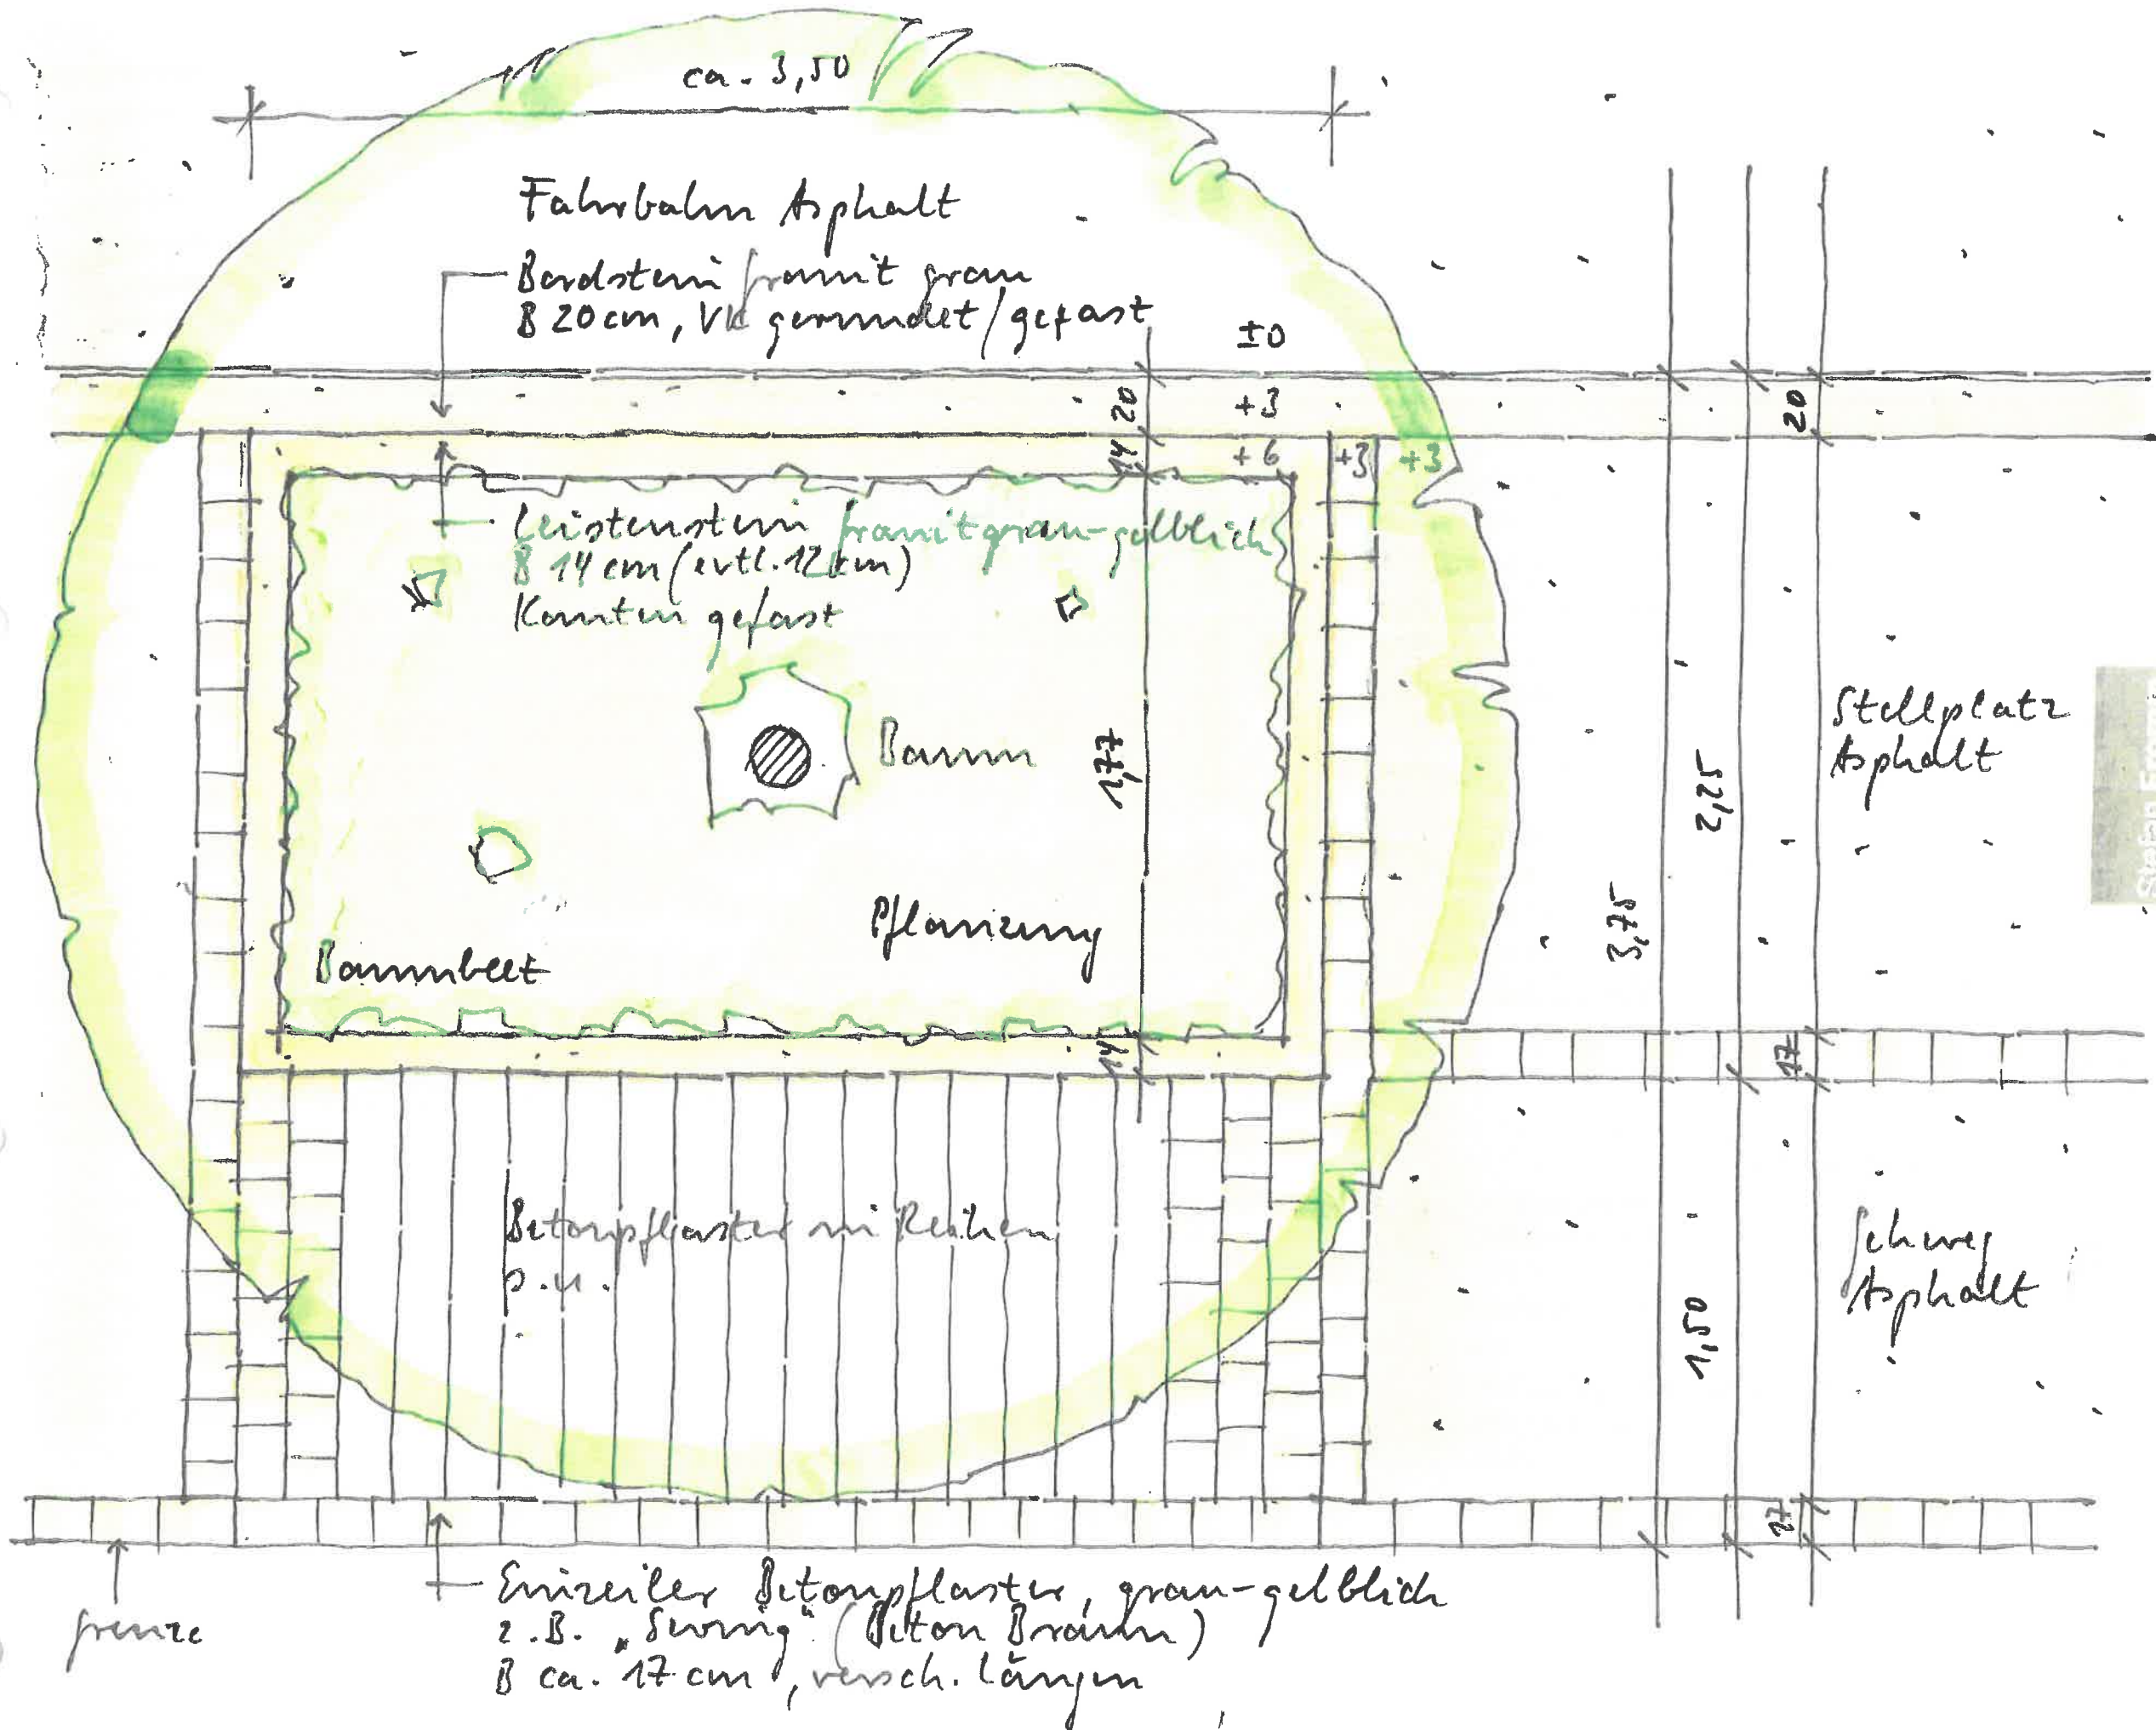 ca. 3,50
Fahrbahn Asphalt
Bordstein Granit grau
B 20cm, VK gerundet/gefast
±0
20
+3
20
14
+6
+3
+3
Leistenstein Granit grau-gelblich
B 14 cm (evtl. 12 cm)
Kanten gefast
Baum
1,77
2,25
3,75
Stellplatz
Asphalt
Pflanzung
Baumbeet
14
17
Betonpflaster in Reihen
s.u.
1,50
Gehweg
Asphalt
17
Grenze
Einzeiler Betonpflaster, grau-gelblich
z.B. „Swing“ (Beton Braun)
B ca. 17 cm, versch. Längen